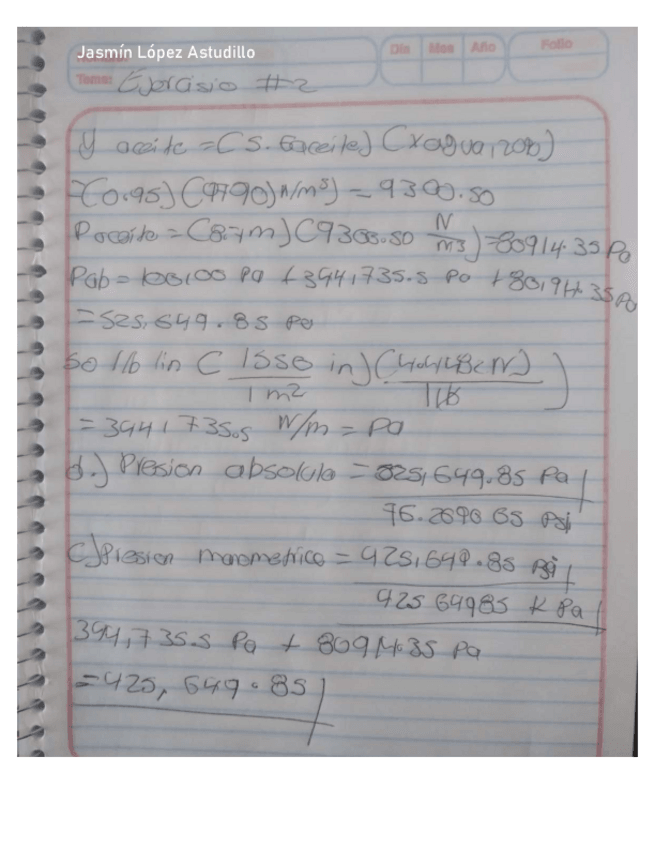 Jasmín López Astudillo
Dia Mes Año Folio
Tema: Ejercisio #2
γ aceite = (S. Gaceite) (γagua, 20b)
=(0.95) (9790) N/m³) = 9300.50
Paceite = (8.7m) (9300.50 N/m3) = 80914.35 Pa
Pab = 100,00 Pa + 3941,735.5 Pa + 80,914.35 Pa
= 525,649.85 Pa
50 lb lin ( 1550 in / 1 m2 ) ( 4.448 N) / 1 lb )
= 3941735.5 N/m = Pa
d.) Presion absoluta = 525,649.85 Pa
76.2690 65 Psi
C) Presion manometrica = 425,649.85 Psi
425 64985 K Pa
394,735.5 Pa + 80914.35 Pa
= 425,649.85